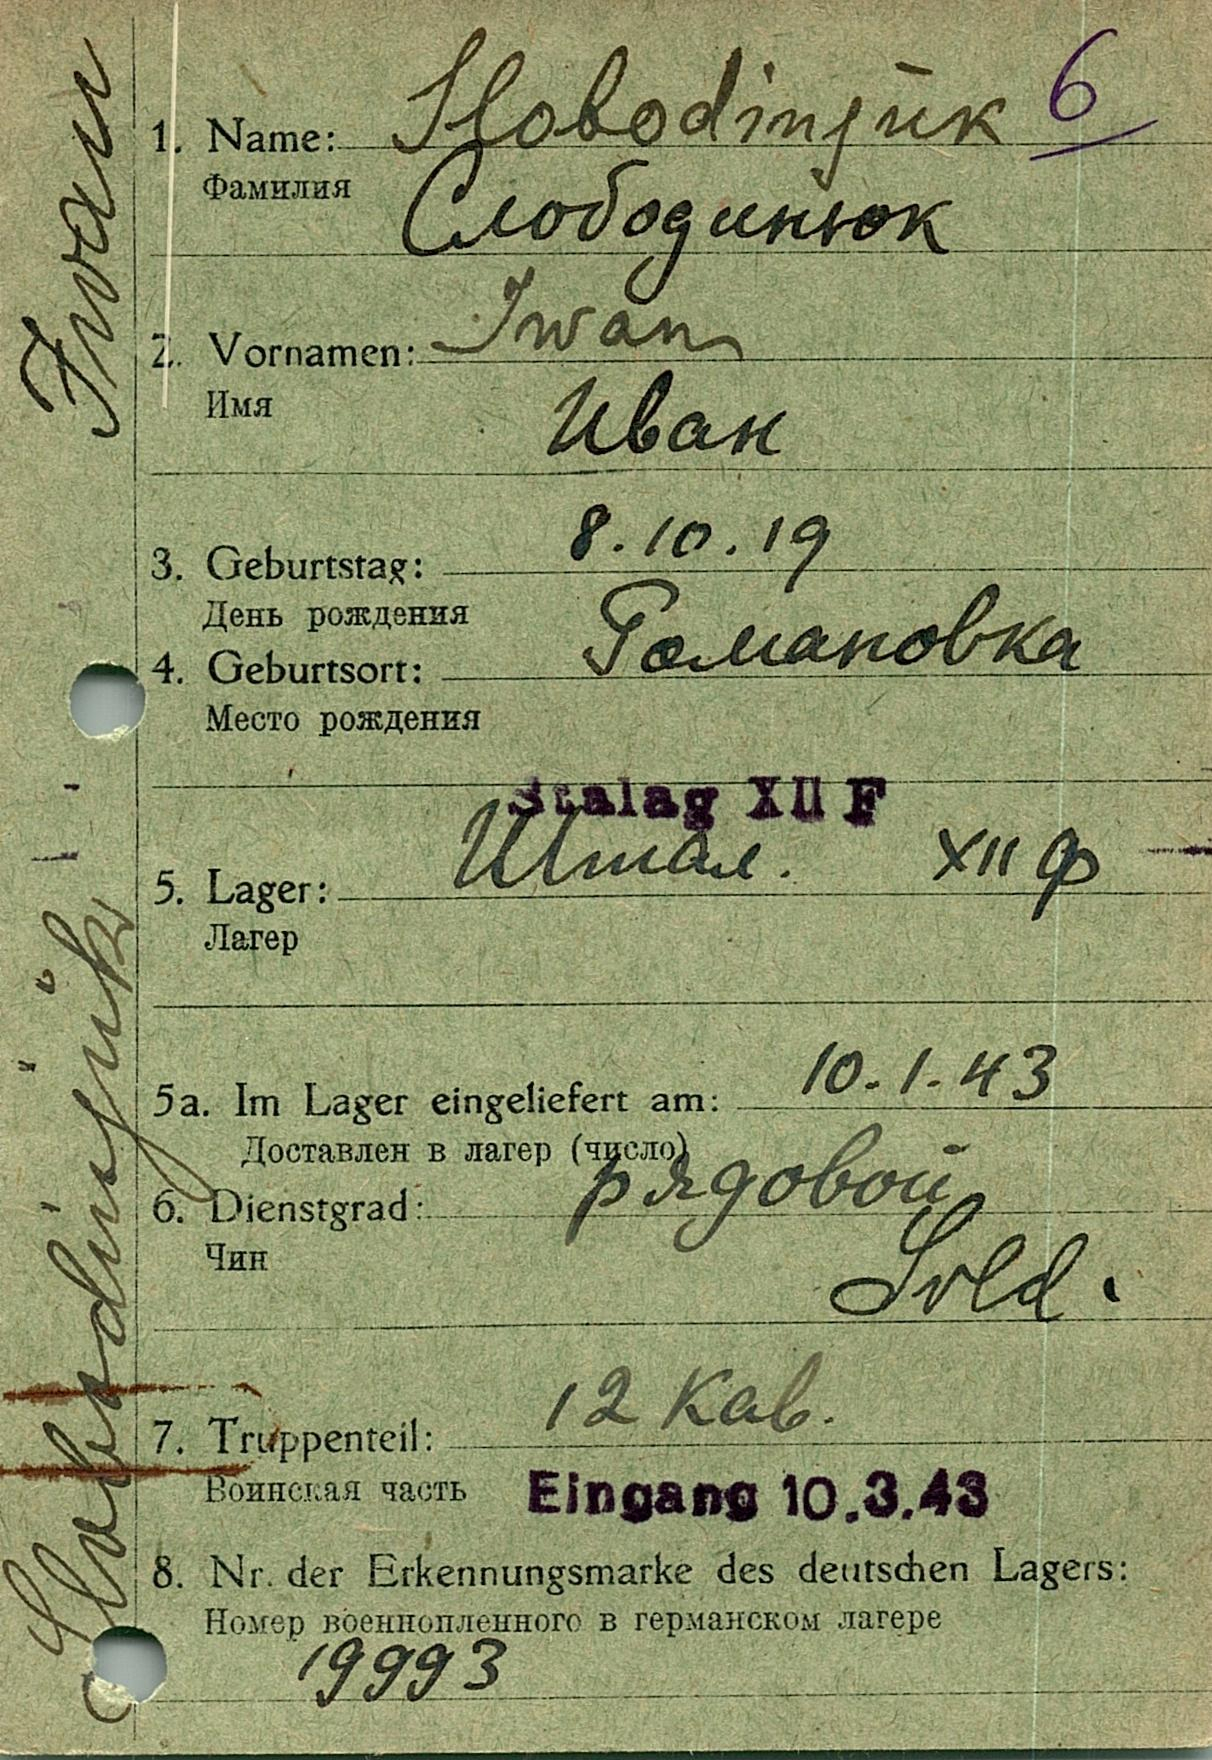 Slobodinjuk 6
1. Name:
Фамилия
Слободинюк
Iwan
2. Vornamen:
Имя
Иван
8.10.19
3. Geburtstag:
День рождения
Романовка
4. Geburtsort:
Место рождения
Stalag XII F
Штал. XII Ф
5. Lager:
Лагер
10.1.43
5a. Im Lager eingeliefert am:
Доставлен в лагер (число)
рядовой
6. Dienstgrad:
Чин
Sold.
12 Кав.
7. Truppenteil:
Воинская часть
Eingang 10.3.43
8. Nr. der Erkennungsmarke des deutschen Lagers:
Номер военнопленного в германском лагере
19993
Slobodinjuk Iwan